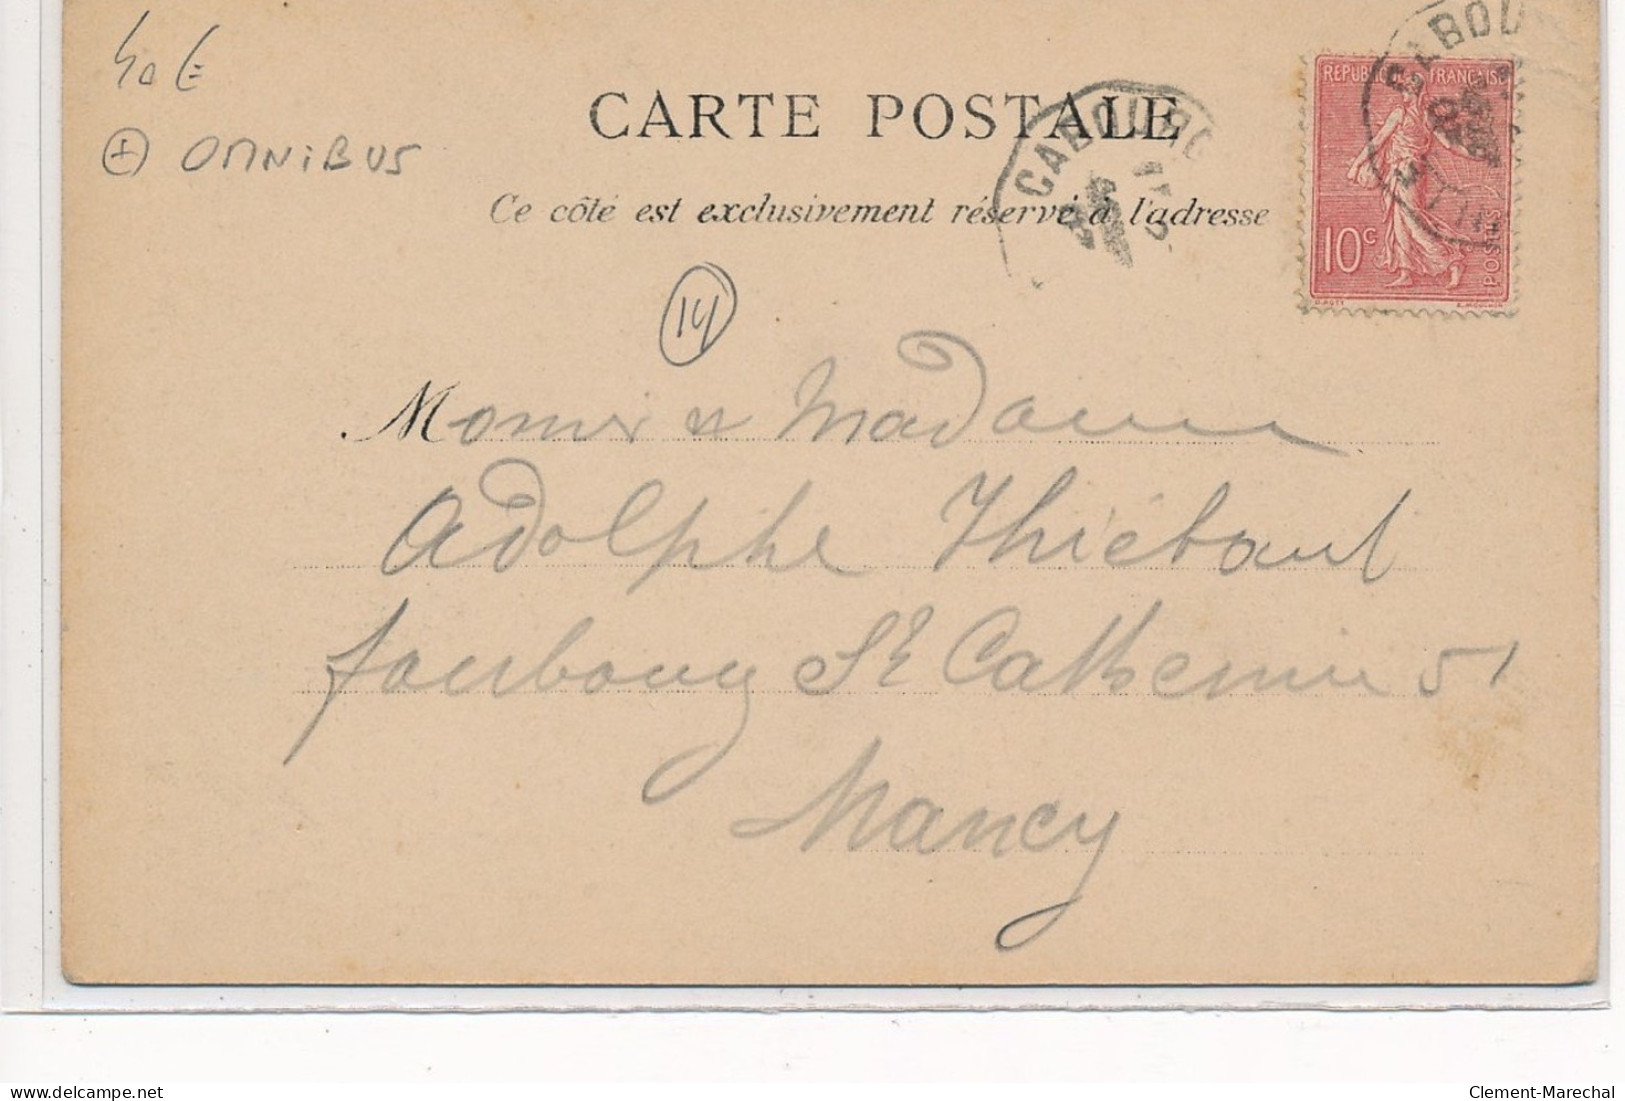 40 €
+ OMNIBUS
CARTE POSTALE
Ce côté est exclusivement réservé à l'adresse
CABOURG
RÉPUBLIQUE FRANÇAISE
10c
POSTES
O. ROTY
CABOU
14
Monsr & Madame
Adolphe Thiébaut
faubourg St Catherine 51
Nancy
delcampe.net
Clement-Marechal